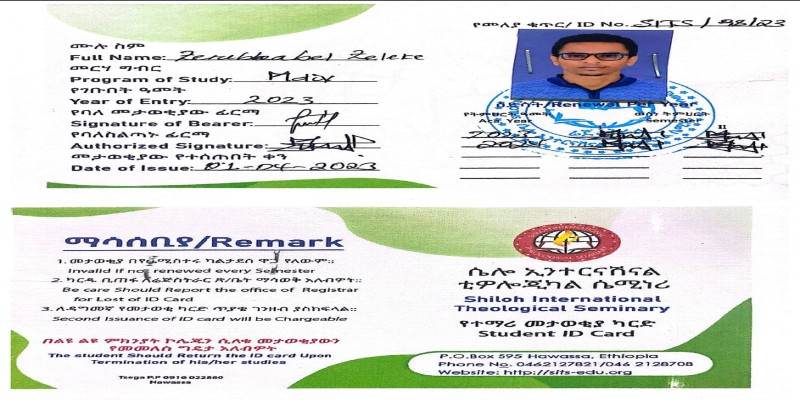 የመለያ ቁጥር/ ID No. SITS / 98/23
ሙሉ ስም
Full Name: Zerubbabel Zeleke
መርሃ ግብር
Program of Study: Mdiv
የገቡበት ዓመት
Year of Entry: 2023
የባለ መታወቂያው ፊርማ
Signature of Bearer:
የባለስልጣኑ ፊርማ
Authorized Signature:
መታወቂያው የተሰጠበት ቀን
Date of Issue: 01-04-2023
ዕድሳት/Renewal Per Year
የትምህርት ዓመት
Aca. Year
ወሰነ ትምህርት
semester
II
2023
2024
ማሳሰቢያ/Remark
1. መታወቂያ በየሴሚስተሩ ካልታደሰ ዋጋ የለውም።
Invalid if not renewed every Semester
2. ካርዱ ቢጠፋ ለሬጅስትራር ጽ/ቤት ማሳወቅ አለብዎት።
Be care Should Report the office of Registrar
for Lost of ID Card
3. ለዳግመኛ የመታወቂያ ካርድ ጥያቄ ገንዘብ ያስከፍላል።
Second Issuance of ID card will be Chargeable
በልዩ ልዩ ምክንያት ኮሌጁን ሲለቁ መታወቂያውን
የመመለስ ግዴታ አለብዎት
The student Should Return the ID card Upon
Termination of his/her studies
Tsega P.P 0916 032860
Hawassa
ሴሎ ኢንተርናሽናል
ቲዎሎጂካል ሴሚነሪ
Shiloh International
Theological Seminary
የተማሪ መታወቂያ ካርድ
Student ID Card
P.O.Box 595 Hawassa, Ethiopia
Phone No. 0462127821/046 2128708
Website: http://sits-edu.org